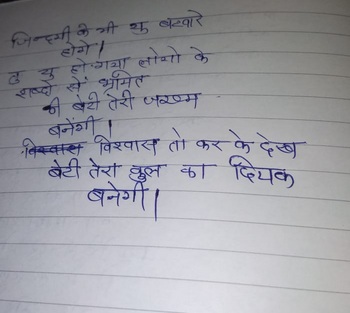 जिन्दगी के भी यु बटवारे
होगे।
तु यु हो गया लोगो के
शब्दो से भ्रमित
की बेटी तेरी जख्म
बनेंगी।
विश्वास तो कर के देख
बेटी तेरा कुल का दियक
बनेगी।